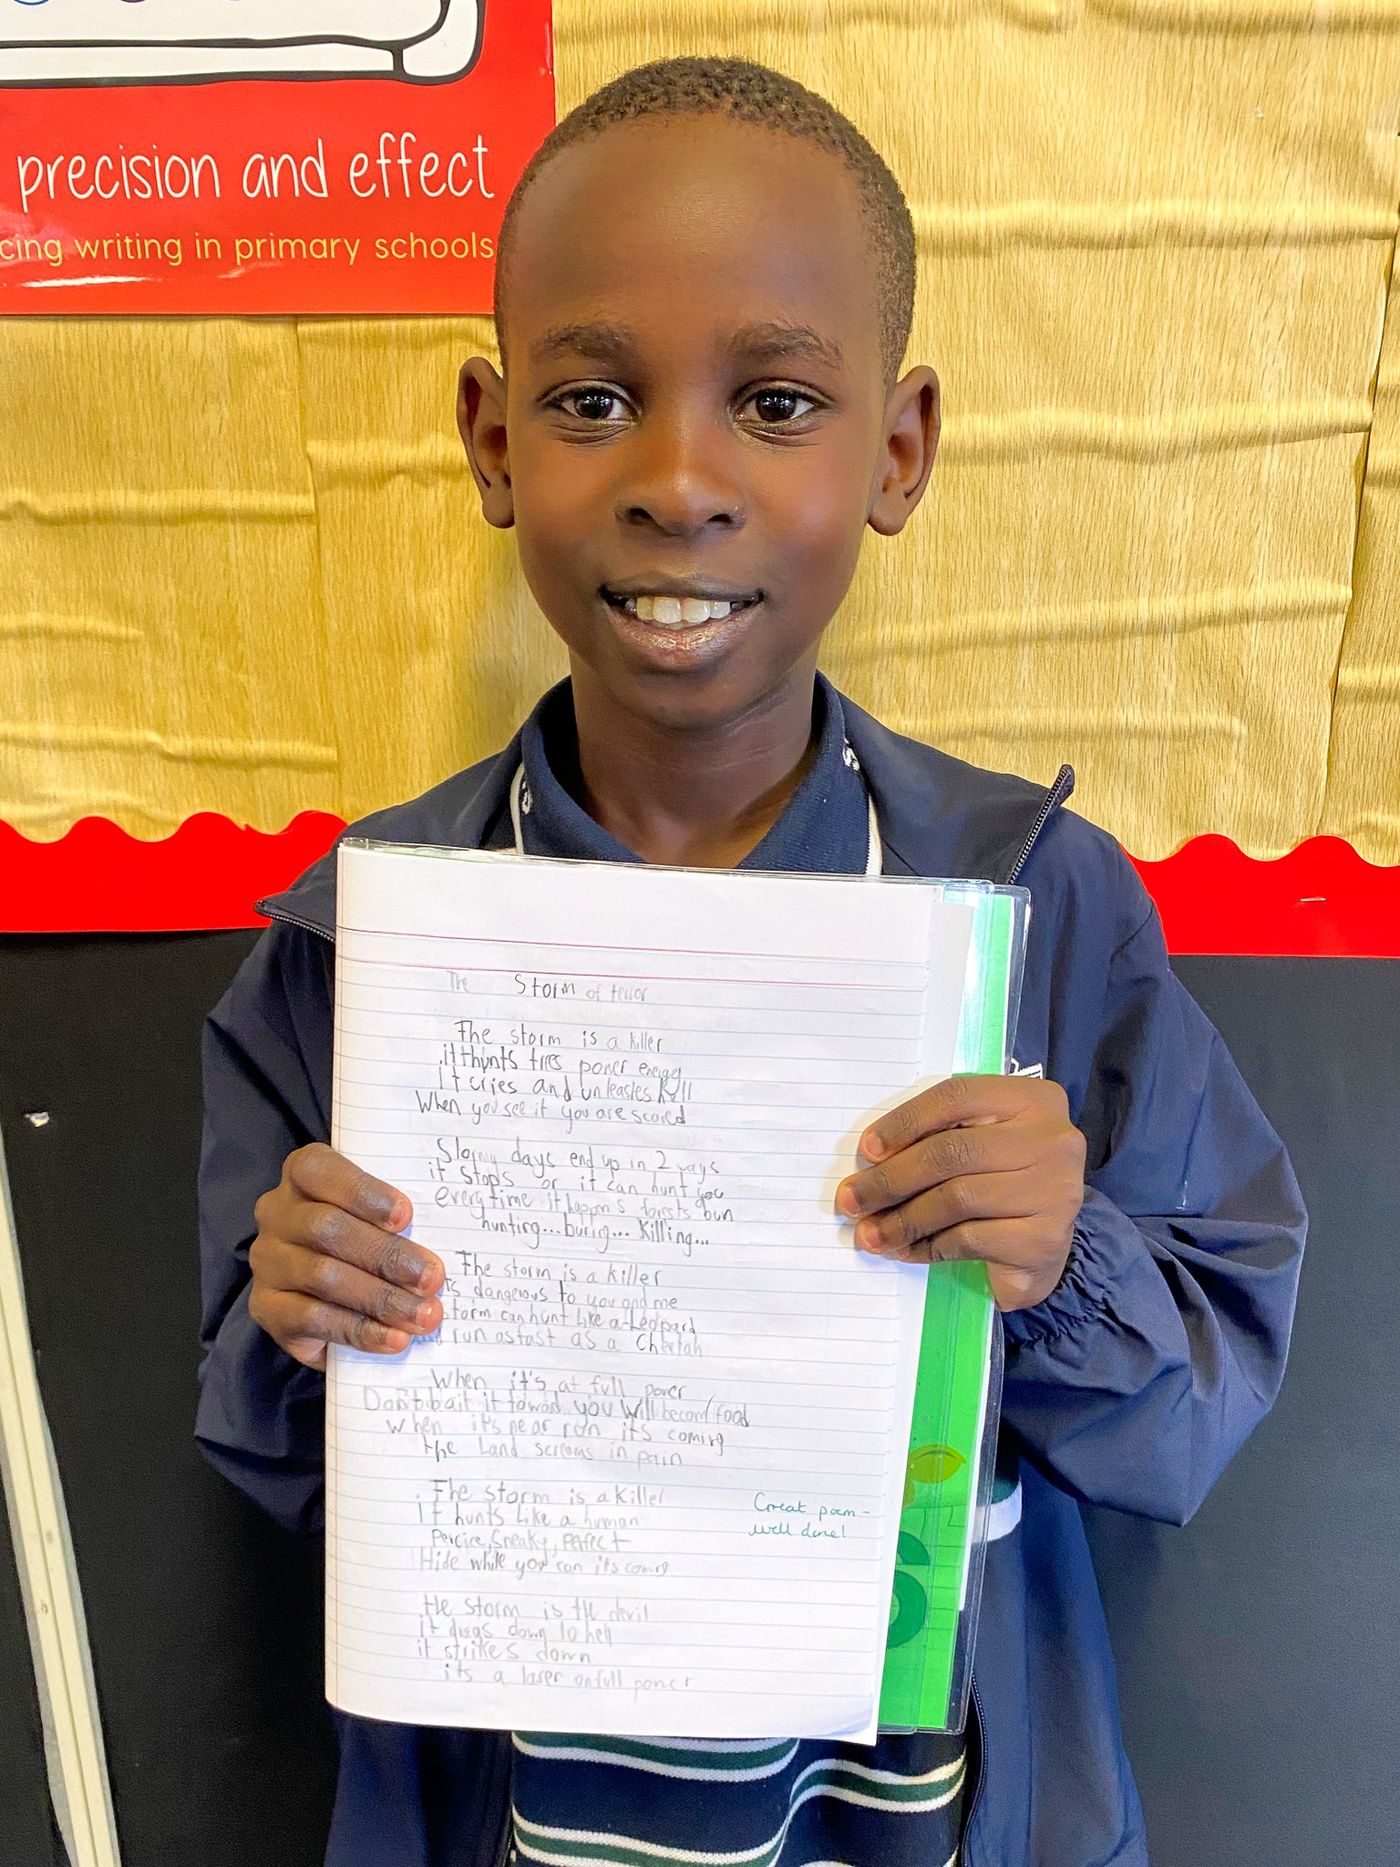 precision and effect
cing writing in primary schools
The Storm of terror
The storm is a killer
it thunts tres poner energy
It cries and unleasles hell
When you see it you are scared
Stormy days end up in 2 ways
it stops or it can hunt you
every time it happens forests bun
hunting... buring... Killing...
The storm is a killer
ts dangerous to you and me
storm can hunt like a Leopard
run as fast as a Cheetah
When it's at full poner
Don't bait it toward you will becom food
when its near run its coming
the Land screams in pain
The storm is a killer
It hunts Like a human
Percire, Sneaky, Perfect
Hide while you can its coming
Great poem -
well done!
the storm is the devil
it digs down to hell
it strikes down
its a laser on full poner